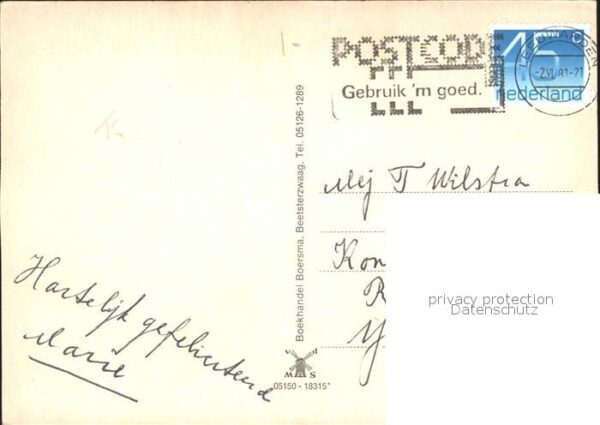 1-
POSTCODE
Gebruik 'm goed.
45 c
nederland
LEEUWARDEN
-2.VI.81-21
Mej T Wilstra
Kon
R
Y
privacy protection
Datenschutz
Hartelijk gefeliciteerd
Marie
Boekhandel Boersma, Beetsterzwaag, Tel. 05126-1289
M S
05150 - 18315*